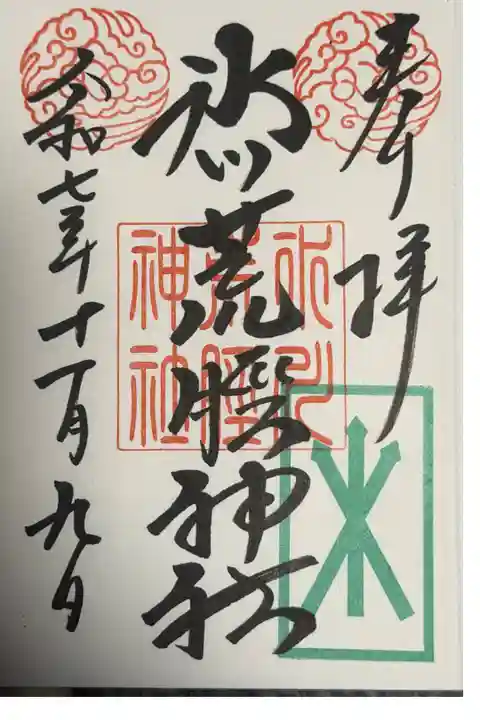 奉拝
氷川荒脛神社
令和七年十一月九日
氷川
荒脛
神社